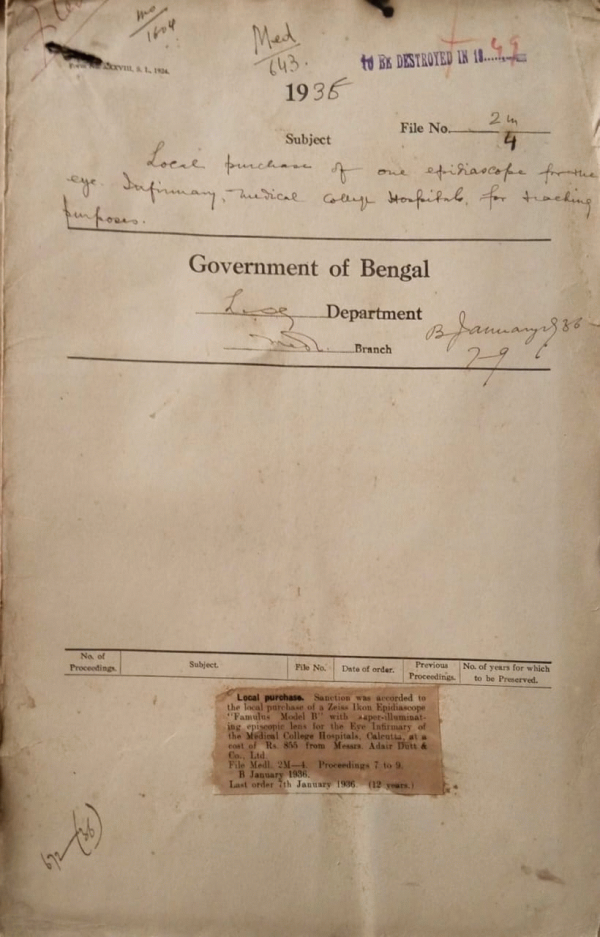 mo
1604
Med
643.
TO BE DESTROYED IN 19 49
XXVIII, S. L., 1934.
1935
File No. 2m
4
Subject
Local purchase of one epidiascope for the
eye Infirmary, Medical College Hospitals, for teaching
purposes.
Government of Bengal
Department
B January 1936
Medl. Branch
7-9
No. of Proceedings.
Subject.
File No.
Date of order.
Previous Proceedings.
No. of years for which to be Preserved.
Local purchase. Sanction was accorded to
the local purchase of a Zeiss Ikon Epidiascope
"Famulus Model B" with super-illuminat-
ing episcopic lens for the Eye Infirmary of
the Medical College Hospitals, Calcutta, at a
cost of Rs. 855 from Messrs. Adair Dutt &
Co., Ltd.
File Medl. 2M—4. Proceedings 7 to 9.
B January 1936.
Last order 7th January 1936. (12 years.)
(36)